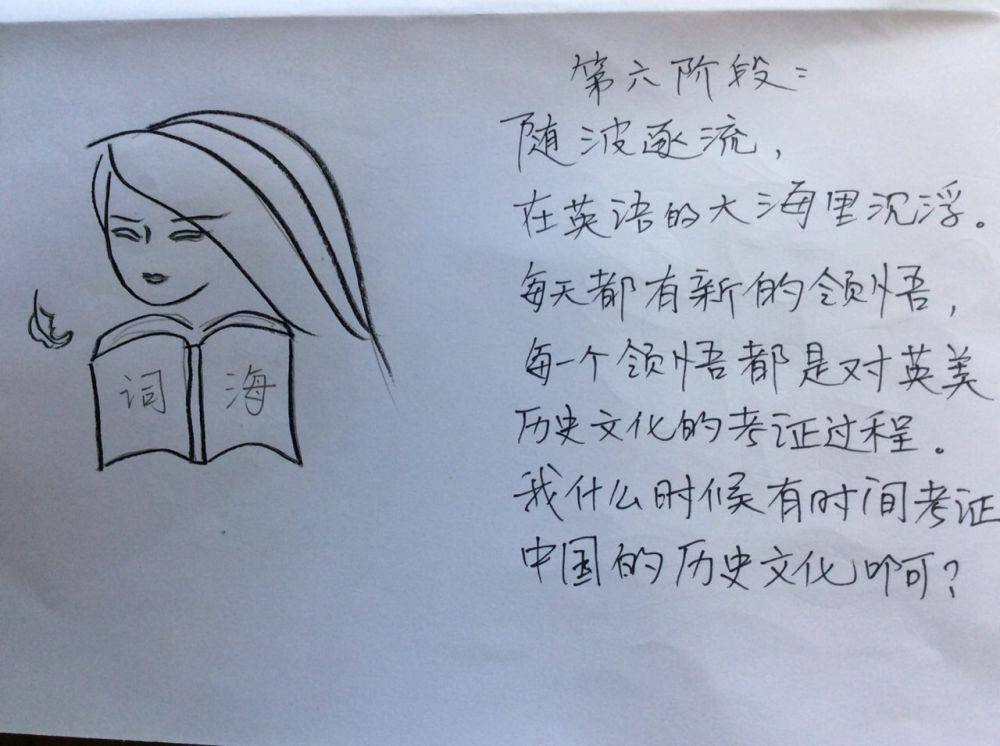 第六阶段：
随波逐流，
在英语的大海里沉浮。
每天都有新的领悟，
每一个领悟都是对英美
历史文化的考证过程。
我什么时候有时间考证
中国的历史文化啊？
词海